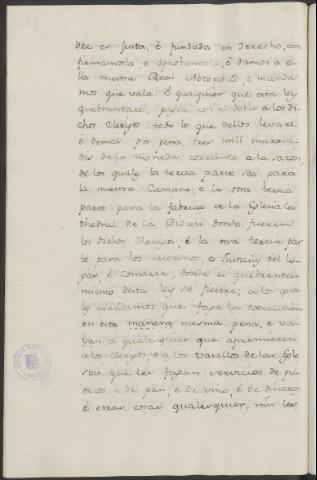 dee es justa, é fundada en derecho, con
firmamosla e aprobamosla, é damos a e
lla nuestra Real Abtoridad, e manda
mos que vala. É qualquier que esta ley
quebrantare, peche con el doblo a los di
chos Clerigos todo lo que dellos levare,
é demas por pena, tres mill marave
dis de la moneda corriente a la sazon,
de los quales la tercia parte sea para
la nuestra Camara, e la otra tercia
parte para la fabrica de la Iglesia Ca
thedral de la Diocesi donde fueren
los dichos Clerigos, é la otra tercia par
te para los merino, e Justicia del lo-
gar, é comarca, donde el quebranta-
miento desta ley se ficiere; a los qua
les mandamos que fagan la execucion
en esta manera, mesma pena, e va-
yan a qualesquier que apremiaren
a los clerigos, e a los Vasallos de las Igle
sias que les fagan servicios de di
neros, e de pan, e de vino, é de dineros
é otras cosas qualesquier, nin les